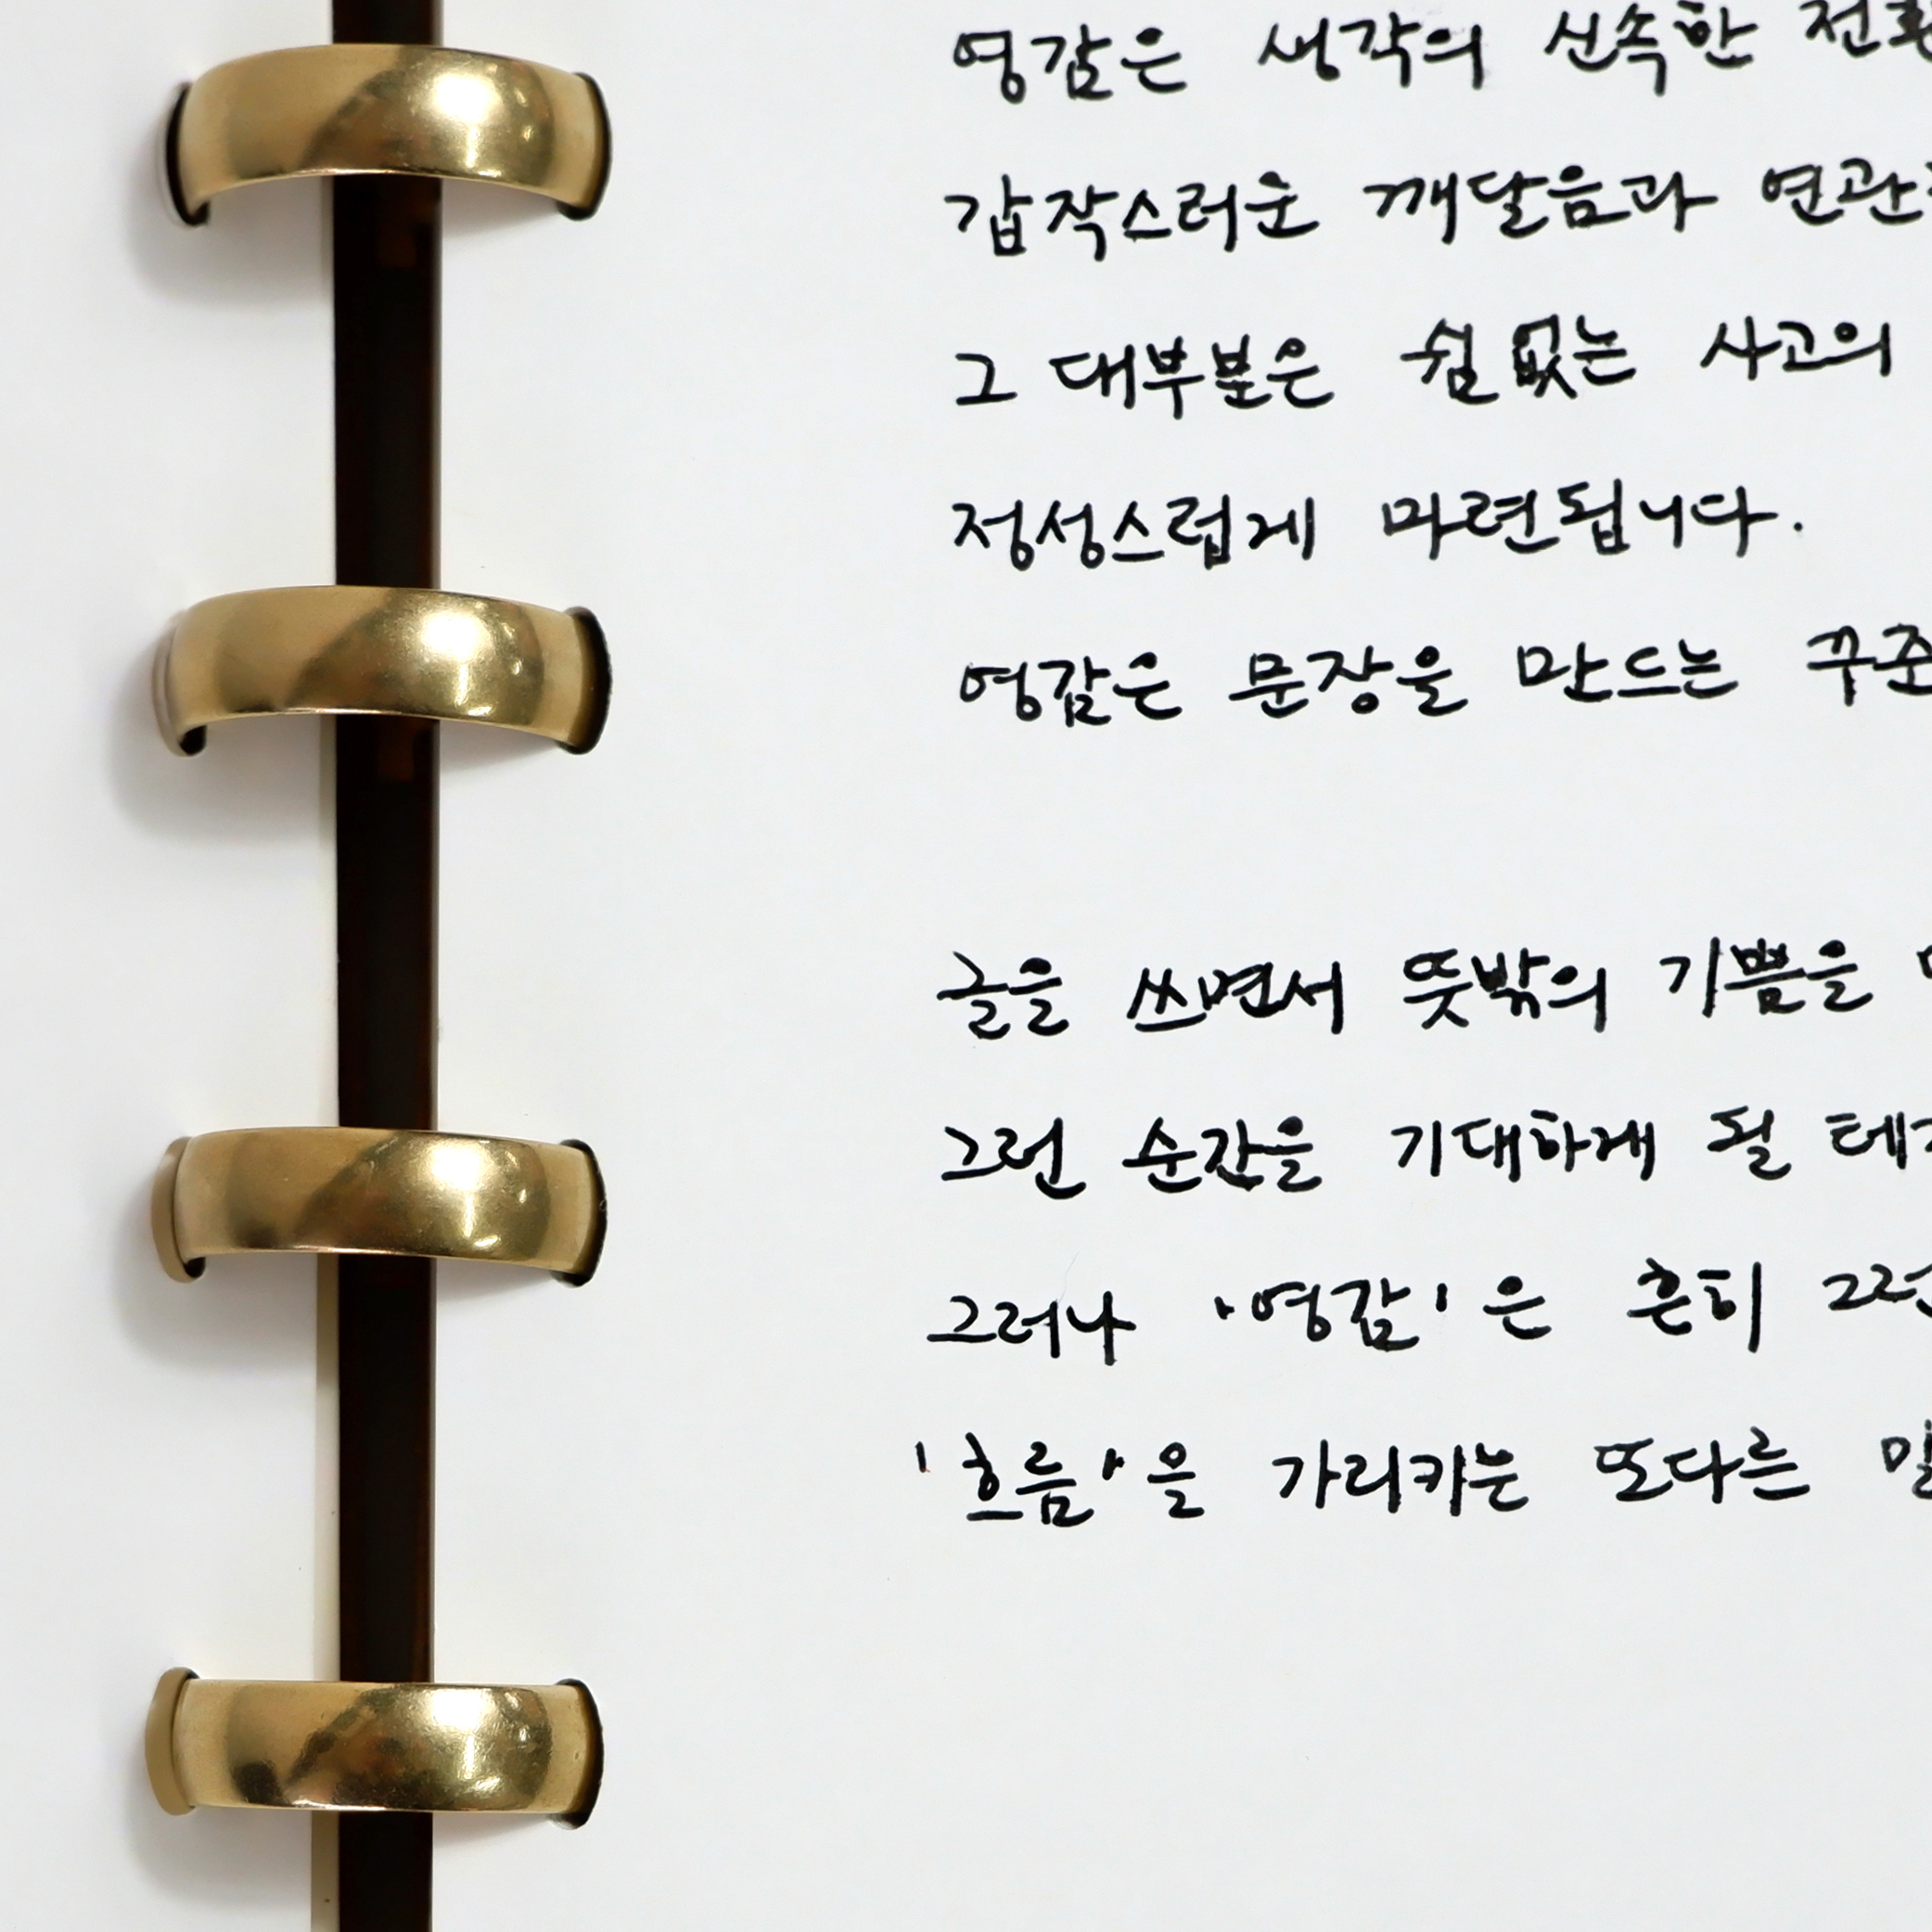 영감은 생각의 신속한 전환
갑작스러운 깨달음과 연관
그 대부분은 쉼없는 사고의
정성스럽게 마련됩니다.
영감은 문장을 만드는 꾸준
글을 쓰면서 뜻밖의 기쁨을
그런 순간을 기대하게 될 테
그러나 '영감'은 흔히 그런
'흐름'을 가리키는 또다른 말